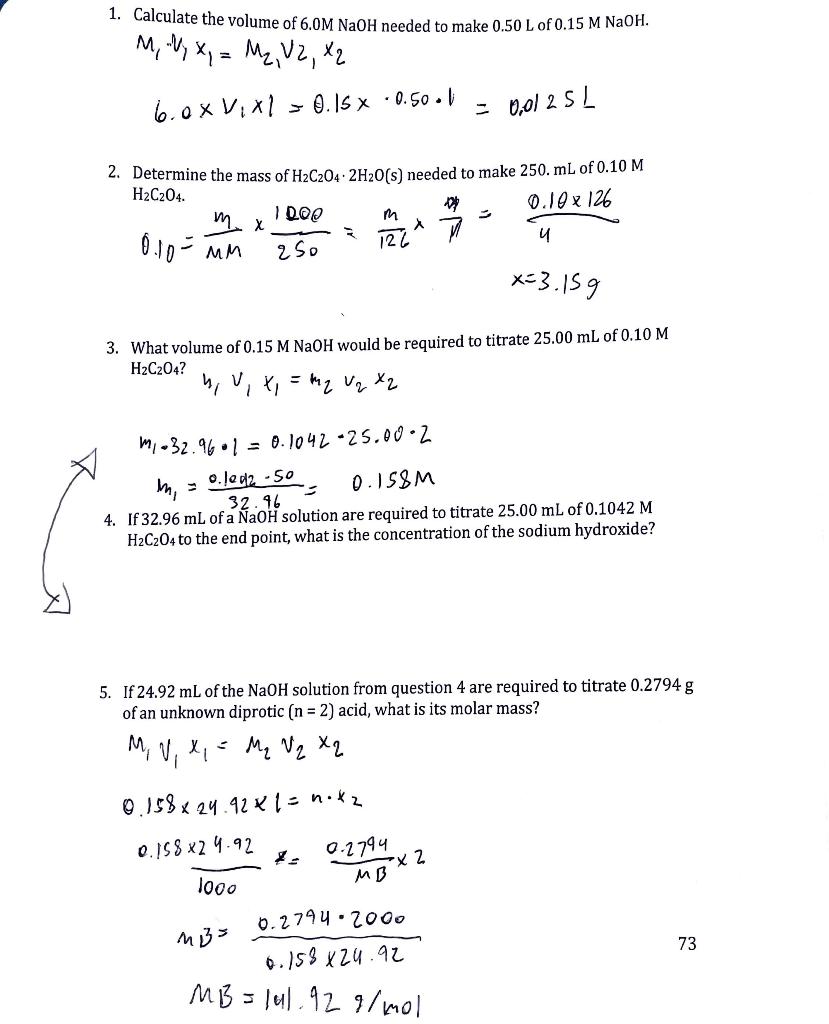 1. Calculate the volume of 6.0M NaOH needed to make 0.50 L of 0.15 M NaOH.
M₁ V₁ x₁ = M₂, V2, x2
6.0 x V₁ x 1 = 0.15 x · 0.50 · 1 = 0.0125 L
2. Determine the mass of H2C2O4 · 2H2O(s) needed to make 250. mL of 0.10 M
H2C2O4.
0.10 = m/MM x 1000/250 = m/126 x = 0.10 x 126/4
x = 3.15g
3. What volume of 0.15 M NaOH would be required to titrate 25.00 mL of 0.10 M
H2C2O4?
V₁ x₁ = m2 v2 x2
m₁ · 32.96 · 1 = 0.1042 · 25.00 · 2
m₁ = 0.1042 · 50/32.96 = 0.158M
4. If 32.96 mL of a NaOH solution are required to titrate 25.00 mL of 0.1042 M
H2C2O4 to the end point, what is the concentration of the sodium hydroxide?
5. If 24.92 mL of the NaOH solution from question 4 are required to titrate 0.2794 g
of an unknown diprotic (n = 2) acid, what is its molar mass?
M₁ V₁ x₁ = M2 V2 x2
0.158 x 24.92 x 1 = n · x2
0.158 x 24.92/1000 = 0.2794/MB x 2
MB = 0.2794 · 2000/0.158 x 24.92
MB = 141.92 g/mol
73